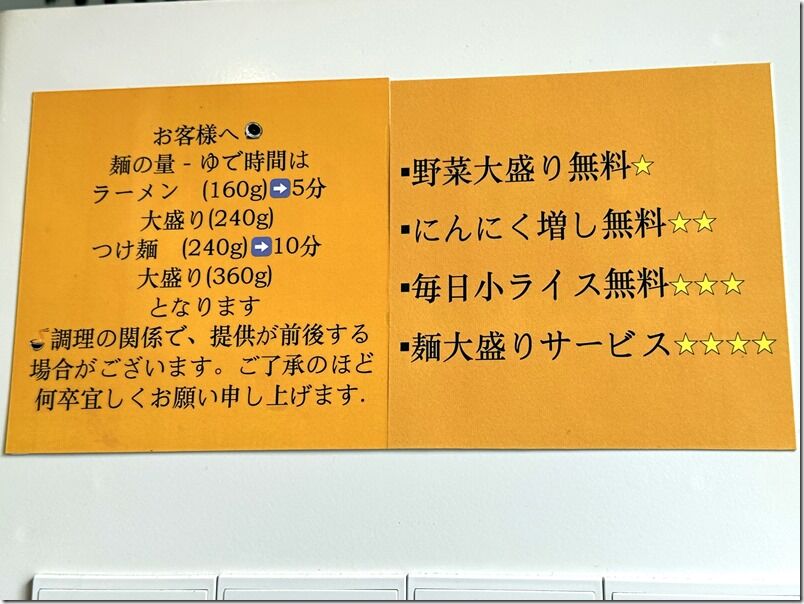 お客様へ
麺の量 - ゆで時間は
ラーメン (160g)➡5分
大盛り(240g)
つけ麺 (240g)➡10分
大盛り(360g)
となります
調理の関係で、提供が前後する
場合がございます。ご了承のほど
何卒宜しくお願い申し上げます.
▪野菜大盛り無料★
▪にんにく増し無料★★
▪毎日小ライス無料★★★
▪麺大盛りサービス★★★★